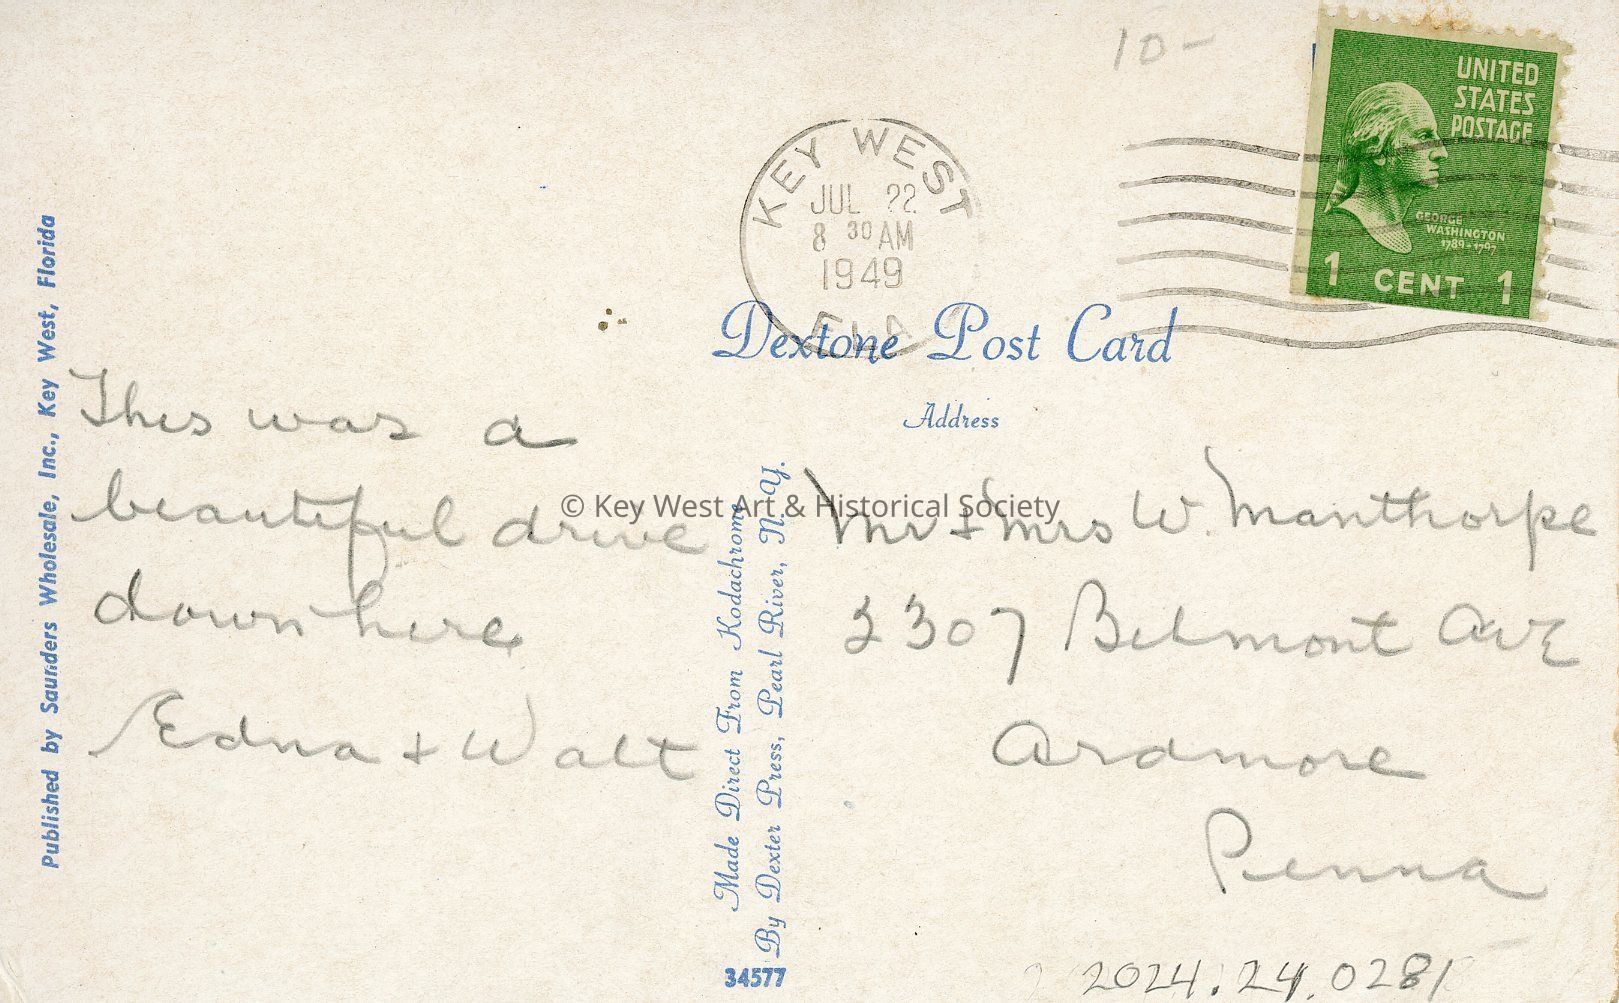 10-
UNITED
STATES
POSTAGE
GEORGE
WASHINGTON
1789-1797
1 CENT 1
KEY WEST
JUL 22
8 30 AM
1949
FLA
Dextone Post Card
Address
This was a
beautiful drive
down here
Edna + Walt
© Key West Art & Historical Society
Mr + Mrs W Manthorpe
2307 Belmont Ave
Ardmore
Penna
Published by Saunders Wholesale, Inc., Key West, Florida
Made Direct From Kodachrome
By Dexter Press, Pearl River, N. Y.
34577
2024.24.0281